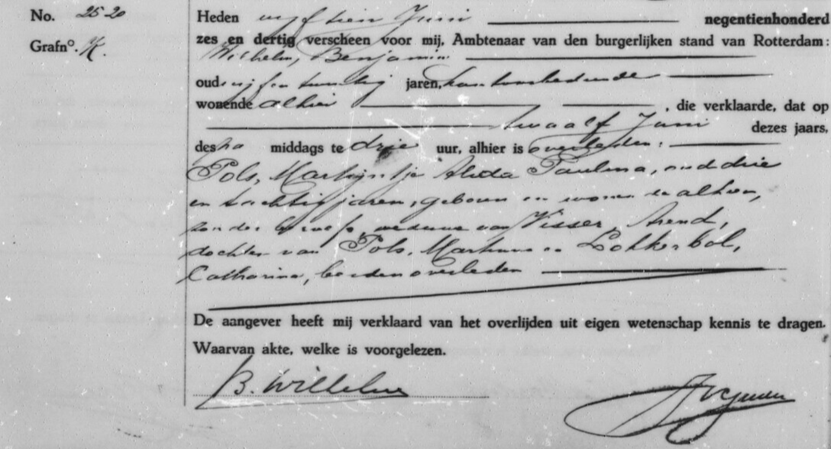 No. 2520
Grafn°. K.
Heden vijftien Juni negentienhonderd
zes en dertig verscheen voor mij, Ambtenaar van den burgerlijken stand van Rotterdam:
Wilhelm, Benjamin
oud vijf en twintig jaren, kantoorbediende
wonende alhier, die verklaarde, dat op
twaalf Juni dezes jaars,
des na middags te drie uur, alhier is overleden:
Pols, Martijntje Alida Paulina, oud drie
en tachtig jaren, geboren en wonende alhier,
zonder beroep, weduwe van Visser, Arend,
dochter van Pols, Martinus en Lokkerbol,
Catharina, beiden overleden
De aangever heeft mij verklaard van het overlijden uit eigen wetenschap kennis te dragen.
Waarvan akte, welke is voorgelezen.
B. Wilhelm